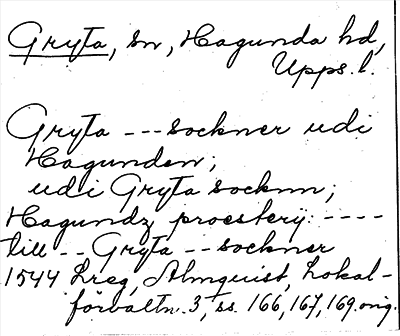 Gryta, sn, Hagunda hd,
Upps. l.
Gryta --- sockner udi
Hagunden;
udi Gryta socknn;
Hagundz proesterij: ----
till -- Gryta -- sockner
1544 Lreg, Almquist, Lokal-
förvaltn. 3, ss. 166, 167, 169 orig.